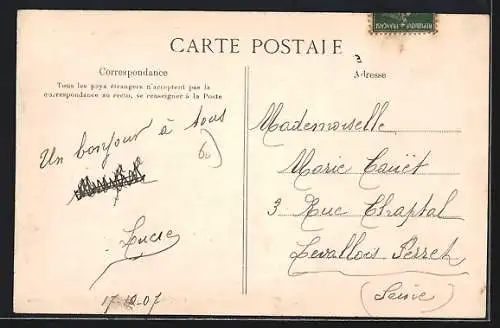 RÉPUBLIQUE FRANÇAISE
3
CARTE POSTALE
Correspondance
Tous les pays étrangers n'acceptent pas la
correspondance au recto, se renseigner à la Poste
Adresse
Un bonjour à tous
Lucie
17-12-07
Mademoiselle
Marie Cauët
3 Rue Chaptal
Levallois Perret
(Seine)